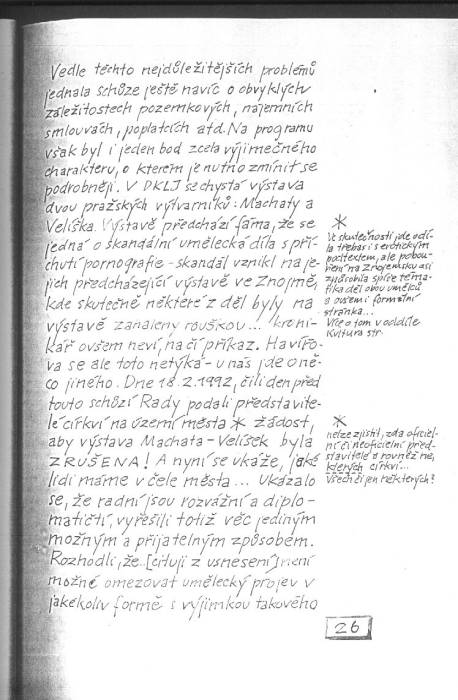 Vedle těchto nejdůležitějších problémů
jednala schůze ještě navíc o obvyklých
záležitostech pozemkových, nájemních
smlouvách, poplatcích atd. Na programu
však byl i jeden bod zcela výjimečného
charakteru, o kterém je nutno zmínit se
podrobněji. V DKLJ se chystá výstava
dvou pražských výtvarníků: Machaty a
Velíška. Výstavě předchází fáma, že se
jedná o skandální umělecká díla s pří-
chutí pornografie - skandál vznikl na je-
jich předcházející výstavě ve Znojmě,
kde skutečně některé z děl byly na
výstavě zahaleny rouškou... kroni-
kář ovšem neví, na čí příkaz. Havířo-
va se ale toto netýká - u nás jde o ně-
co jiného. Dne 18.2.1992, čili den před
touto schůzí Rady podali představite-
lé církví na území města * žádost,
aby výstava Machata - Velíšek byla
ZRUŠENA! A nyní se ukáže, jaké
lidi máme v čele města... Ukázalo
se, že radní jsou rozvážní a diplo-
matičtí, vyřešili totiž věc jediným
možným a přijatelným způsobem.
Rozhodli, že [cituji z usnesení] není
možné omezovat umělecký projev v
jakékoliv formě s výjimkou takového
*
Ve skutečnosti jde o dí-
la třebas i s erotickým
podtextem, ale pobou-
ření na Znojemsku asi
způsobila spíše téma-
tika děl obou umělců
a ovšem i formální
stránka...
Více o tom v oddíle
Kultura str.
*
nelze zjistit, zda oficiel-
ní či neoficielní před-
stavitelé a rovněž ne,
kterých církví...
Všech či jen některých?
26